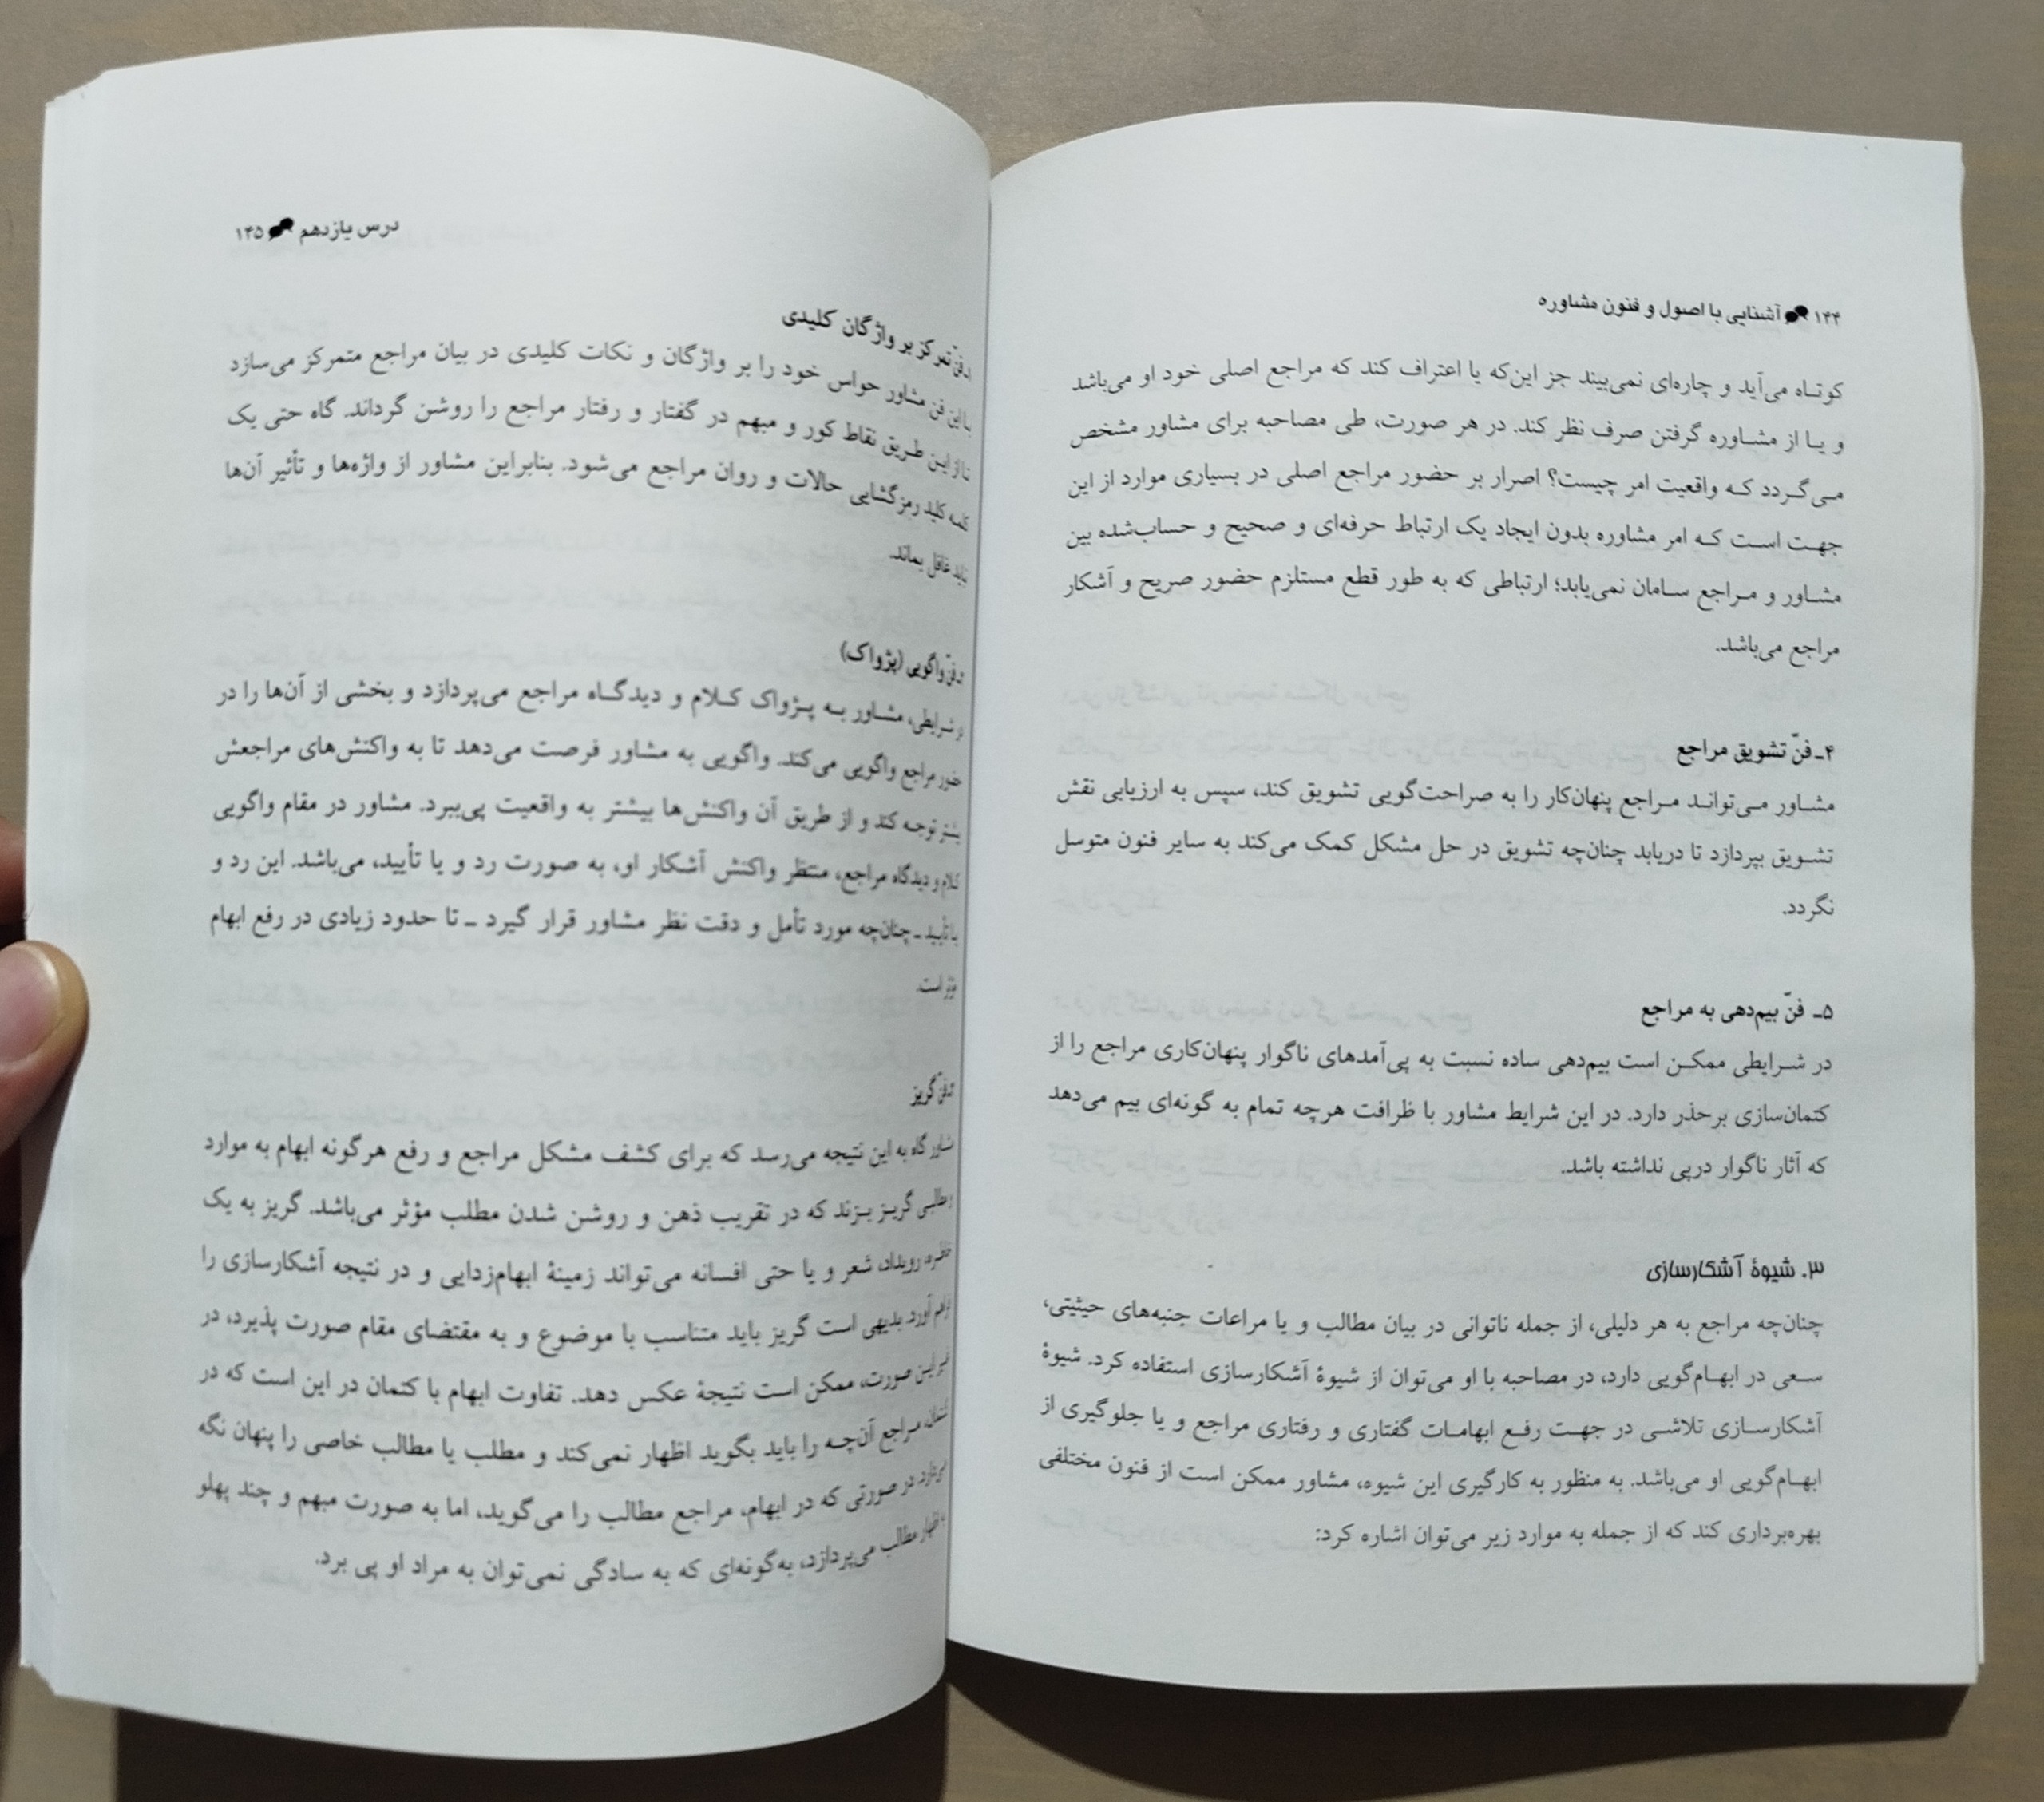 ۱۴۴ آشنایی با اصول و فنون مشاوره
کوتاه می‌آید و چاره‌ای نمی‌بیند جز این‌که یا اعتراف کند که مراجع اصلی خود او می‌باشد
و یا از مشاوره گرفتن صرف نظر کند. در هر صورت، طی مصاحبه برای مشاور مشخص
می‌گردد که واقعیت امر چیست؟ اصرار بر حضور مراجع اصلی در بسیاری موارد از این
جهت است که امر مشاوره بدون ایجاد یک ارتباط حرفه‌ای و صحیح و حساب‌شده بین
مشاور و مراجع سامان نمی‌یابد؛ ارتباطی که به طور قطع مستلزم حضور صریح و آشکار
مراجع می‌باشد.
۴ـ فنّ تشویق مراجع
مشاور می‌تواند مراجع پنهان‌کار را به صراحت‌گویی تشویق کند، سپس به ارزیابی نقش
تشویق بپردازد تا دریابد چنان‌چه تشویق در حل مشکل کمک می‌کند به سایر فنون متوسل
نگردد.
۵ـ فنّ بیم‌دهی به مراجع
در شرایطی ممکن است بیم‌دهی ساده نسبت به پی‌آمدهای ناگوار پنهان‌کاری مراجع را از
کتمان‌سازی برحذر دارد. در این شرایط مشاور با ظرافت هرچه تمام به گونه‌ای بیم می‌دهد
که آثار ناگوار درپی نداشته باشد.
۳. شیوهٔ آشکارسازی
چنان‌چه مراجع به هر دلیلی، از جمله ناتوانی در بیان مطالب و یا مراعات جنبه‌های حیثیتی،
سعی در ابهام‌گویی دارد، در مصاحبه با او می‌توان از شیوهٔ آشکارسازی استفاده کرد. شیوهٔ
آشکارسازی تلاشی در جهت رفع ابهامات گفتاری و رفتاری مراجع و یا جلوگیری از
ابهام‌گویی او می‌باشد. به منظور به کارگیری این شیوه، مشاور ممکن است از فنون مختلفی
بهره‌برداری کند که از جمله به موارد زیر می‌توان اشاره کرد:
درس یازدهم ۱۴۵
فنّ تمرکز بر واژگان کلیدی
با این فن مشاور حواس خود را بر واژگان و نکات کلیدی در بیان مراجع متمرکز می‌سازد
تا از این طریق نقاط کور و مبهم در گفتار و رفتار مراجع را روشن گرداند. گاه حتی یک
کلمه کلید رمزگشایی حالات و روان مراجع می‌شود. بنابراین مشاور از واژه‌ها و تأثیر آن‌ها
نباید غافل بماند.
فنّ واگویی (پژواک)
در شرایطی، مشاور به پژواک کلام و دیدگاه مراجع می‌پردازد و بخشی از آن‌ها را در
حضور مراجع واگویی می‌کند. واگویی به مشاور فرصت می‌دهد تا به واکنش‌های مراجعش
بیشتر توجه کند و از طریق آن واکنش‌ها بیشتر به واقعیت پی‌ببرد. مشاور در مقام واگویی
کلام و دیدگاه مراجع، منتظر واکنش آشکار او، به صورت رد و یا تأیید، می‌باشد. این رد و
یا تأیید ـ چنان‌چه مورد تأمل و دقت نظر مشاور قرار گیرد ـ تا حدود زیادی در رفع ابهام
مؤثر است.
فنّ گریز
مشاور گاه به این نتیجه می‌رسد که برای کشف مشکل مراجع و رفع هرگونه ابهام به موارد
و مطالبی گریز بزند که در تقریب ذهن و روشن شدن مطلب مؤثر می‌باشد. گریز به یک
خاطره، رویداد، شعر و یا حتی افسانه می‌تواند زمینهٔ ابهام‌زدایی و در نتیجه آشکارسازی را
فراهم آورد. بدیهی است گریز باید متناسب با موضوع و به مقتضای مقام صورت پذیرد، در
غیر این صورت، ممکن است نتیجهٔ عکس دهد. تفاوت ابهام با کتمان در این است که در
کتمان، مراجع آن‌چه را باید بگوید اظهار نمی‌کند و مطلب یا مطالب خاصی را پنهان نگه
می‌دارد. در صورتی که در ابهام، مراجع مطالب را می‌گوید، اما به صورت مبهم و چند پهلو
به اظهار مطالب می‌پردازد، به‌گونه‌ای که به سادگی نمی‌توان به مراد او پی برد.